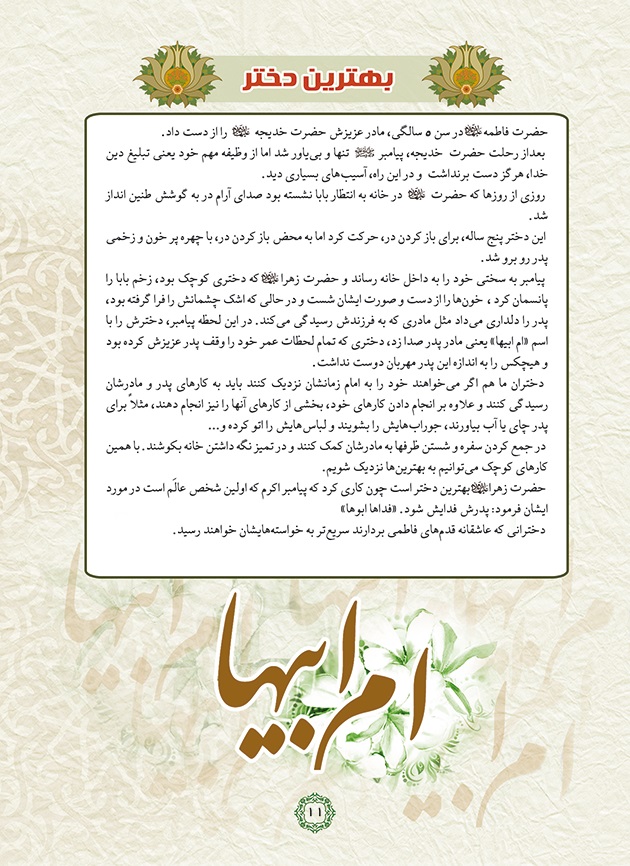 بهترین دختر
حضرت فاطمه در سن ۵ سالگی، مادر عزیزش حضرت خدیجه را از دست داد.
بعداز رحلت حضرت خدیجه، پیامبر ﷺ تنها و بی‌یاور شد اما از وظیفه مهم خود یعنی تبلیغ دین
خدا، هرگز دست برنداشت و در این راه، آسیب‌های بسیاری دید.
روزی از روزها که حضرت در خانه به انتظار بابا نشسته بود صدای آرام در به گوشش طنین انداز
شد.
این دختر پنج ساله، برای باز کردن در، حرکت کرد اما به محض باز کردن در، با چهره پر خون و زخمی
پدر رو برو شد.
پیامبر به سختی خود را به داخل خانه رساند و حضرت زهرا که دختری کوچک بود، زخم بابا را
پانسمان کرد، خون‌ها را از دست و صورت ایشان شست و در حالی که اشک چشمانش را فرا گرفته بود،
پدر را دلداری می‌داد مثل مادری که به فرزندش رسیدگی می‌کند. در این لحظه پیامبر، دخترش را با
اسم «ام ابیها» یعنی مادر پدر صدا زد، دختری که تمام لحظات عمر خود را وقف پدر عزیزش کرده بود
و هیچکس را به اندازه این پدر مهربان دوست نداشت.
دختران ما هم اگر می‌خواهند خود را به امام زمانشان نزدیک کنند باید به کارهای پدر و مادرشان
رسیدگی کنند و علاوه بر انجام دادن کارهای خود، بخشی از کارهای آنها را نیز انجام دهند، مثلاً برای
پدر چای یا آب بیاورند، جوراب‌هایش را بشویند و لباس‌هایش را اتو کرده و...
در جمع کردن سفره و شستن ظرفها به مادرشان کمک کنند و در تمیز نگه داشتن خانه بکوشند. با همین
کارهای کوچک می‌توانیم به بهترین‌ها نزدیک شویم.
حضرت زهرا بهترین دختر است چون کاری کرد که پیامبر اکرم که اولین شخص عالَم است در مورد
ایشان فرمود: پدرش فدایش شود. «فداها ابوها»
دخترانی که عاشقانه قدم‌های فاطمی بردارند سریع‌تر به خواسته‌هایشان خواهند رسید.
ام ابیها
۱۱